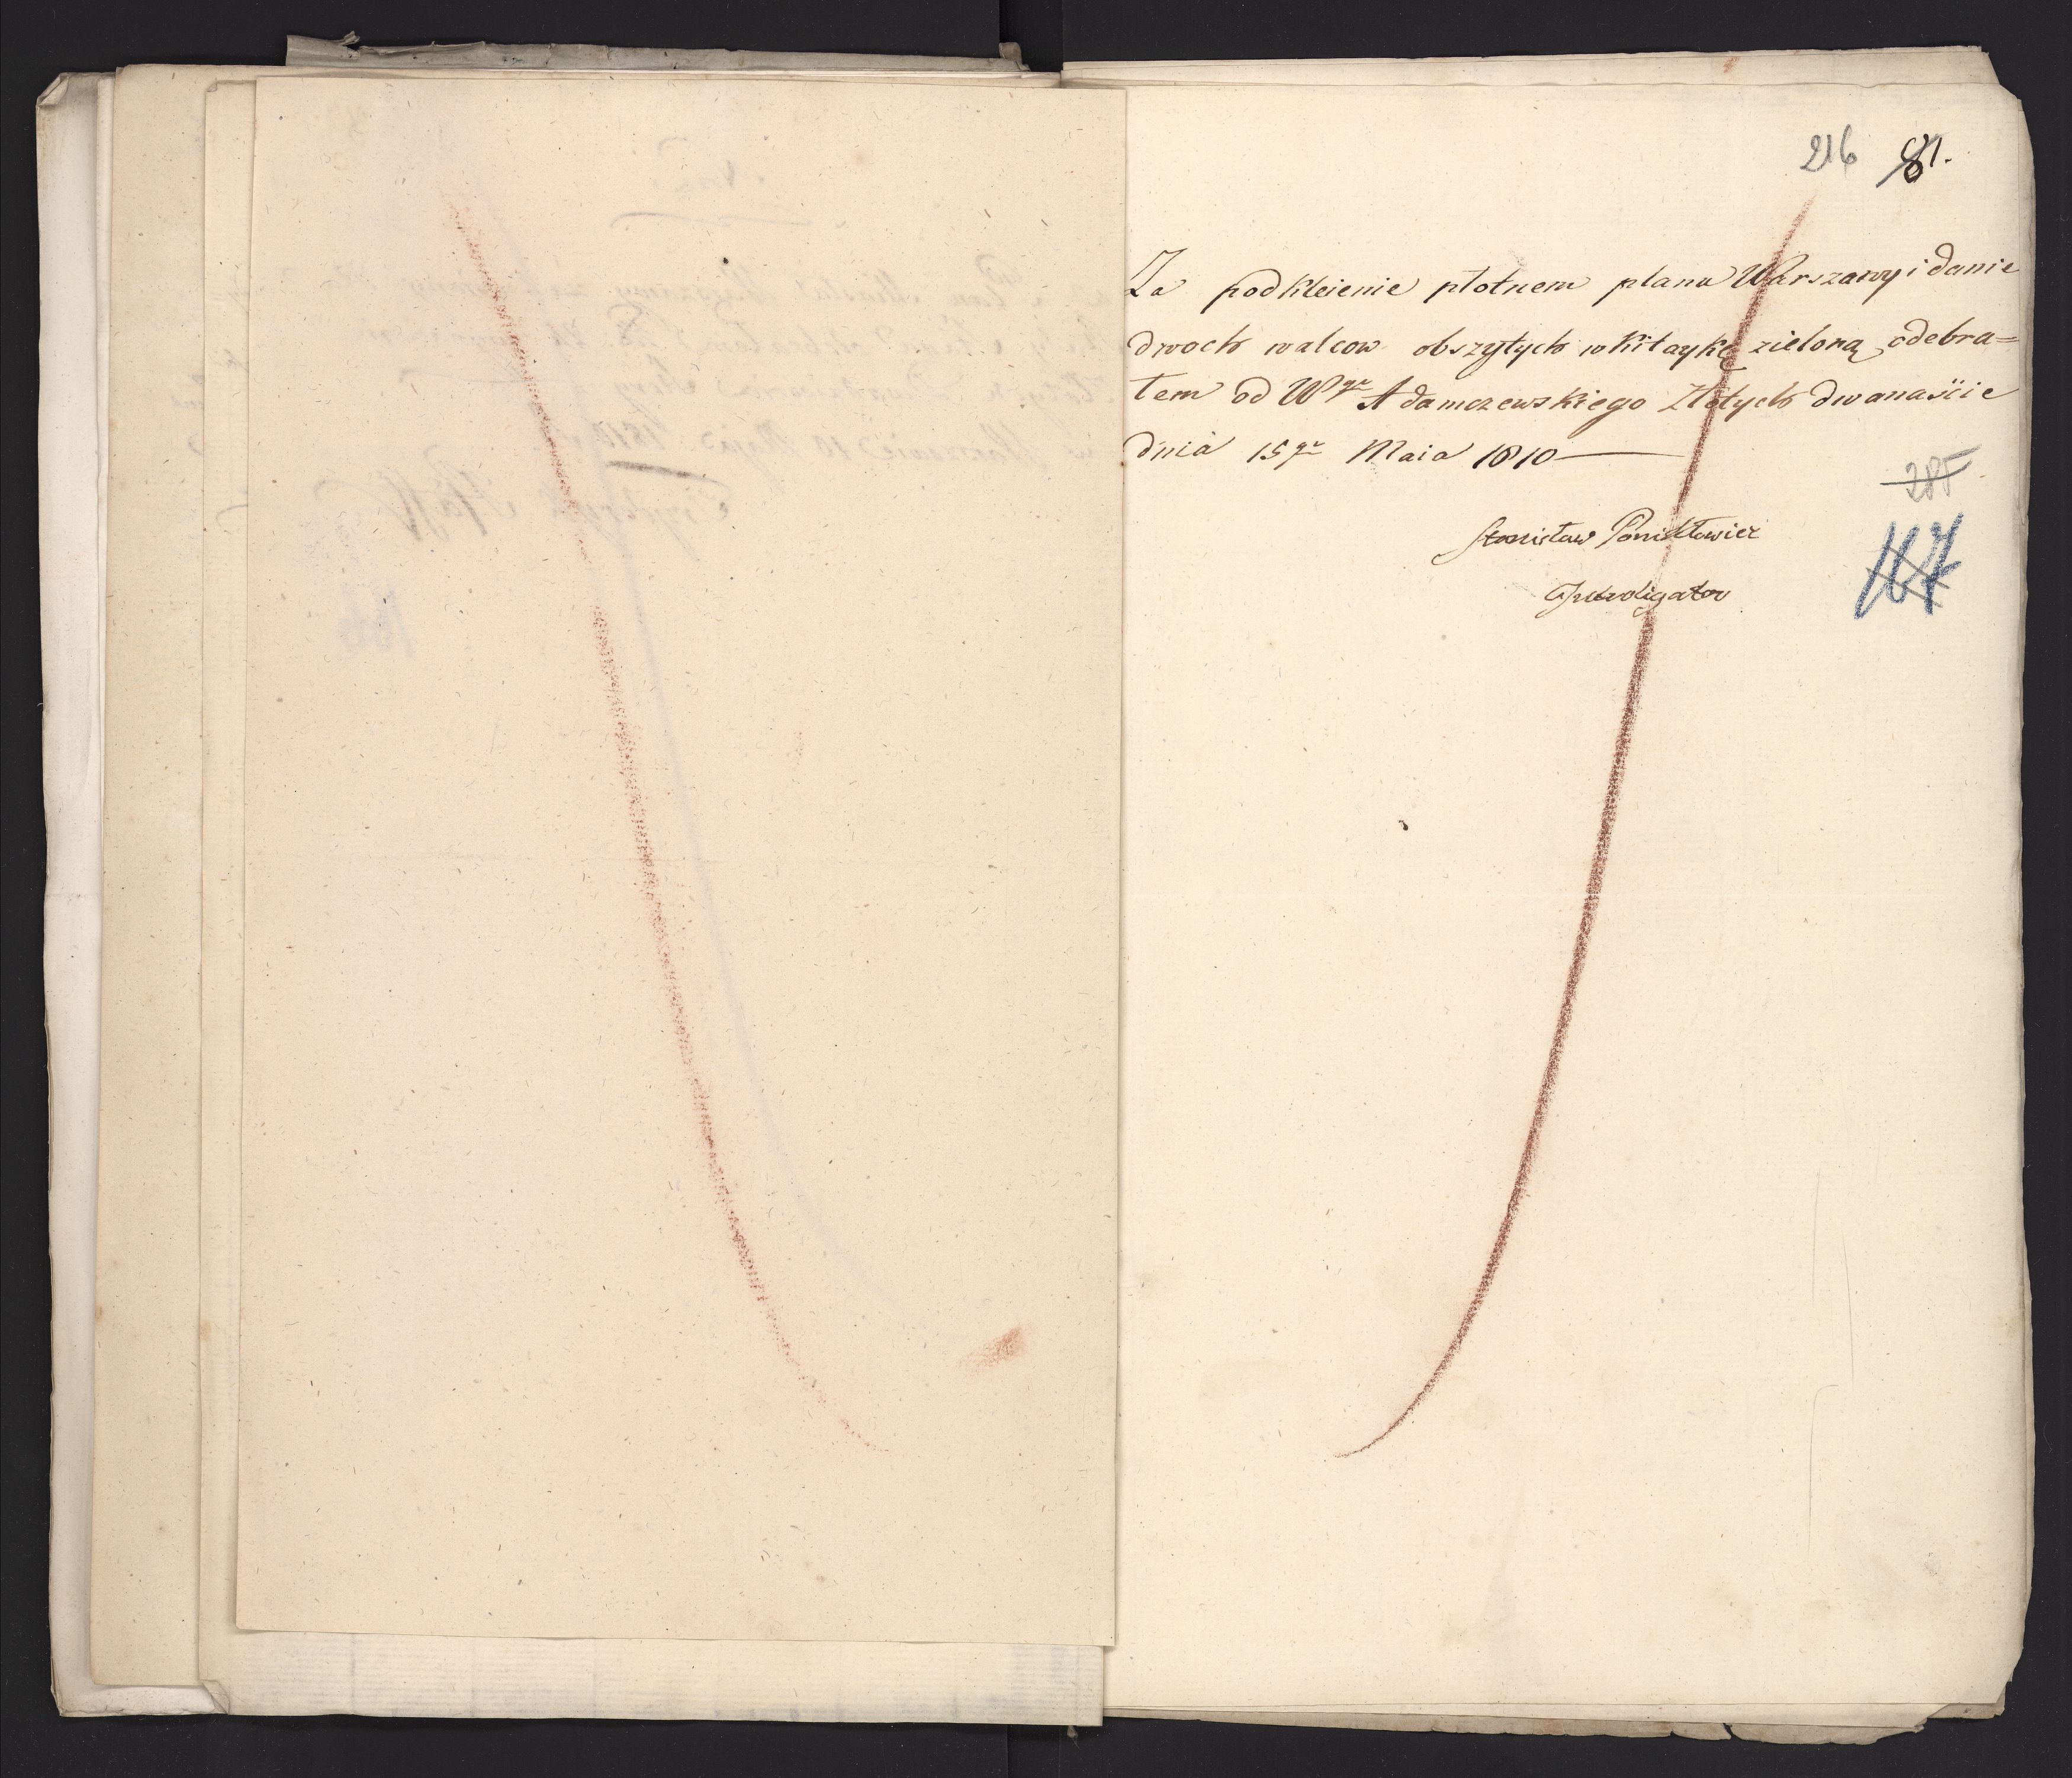 216 81.
Za podkleienie płotnem planu Warszawy i danie
dwoch walcow obszytych w kitaykę zieloną odebra=
łem od Wgo Adamczewskiego Złotych dwanaście
dnia 15go Maia 1810
285
Stanisław
167
Introligator